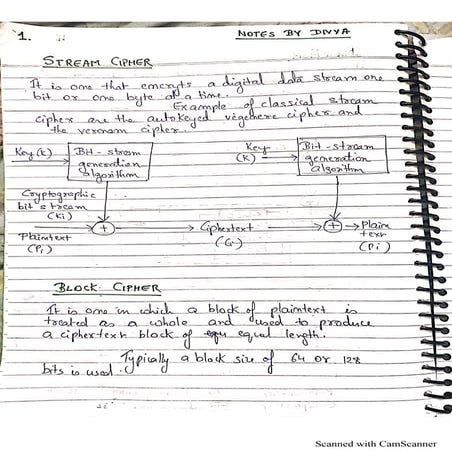 1.
NOTES BY DIVYA
STREAM CIPHER
It is one that encrypts a digital data stream one
bit or one byte at a time.
Example of classical stream
cipher are the autokeyed vigenere cipher and
the vernam cipher.
Key(K)
Bit-stream
generation
algorithm
Key
(K)
Bit-stream
generation
algorithm
Cryptographic
bit stream
(Ki)
+
Ciphertext
(Ci)
+
Plain
text
(Pi)
Plaintext
(Pi)
BLOCK CIPHER
It is one in which a block of plaintext is
treated as a whole and used to produce
a ciphertext block of equal length.
Typically a block size of 64 or 128
bits is used.
Scanned with CamScanner